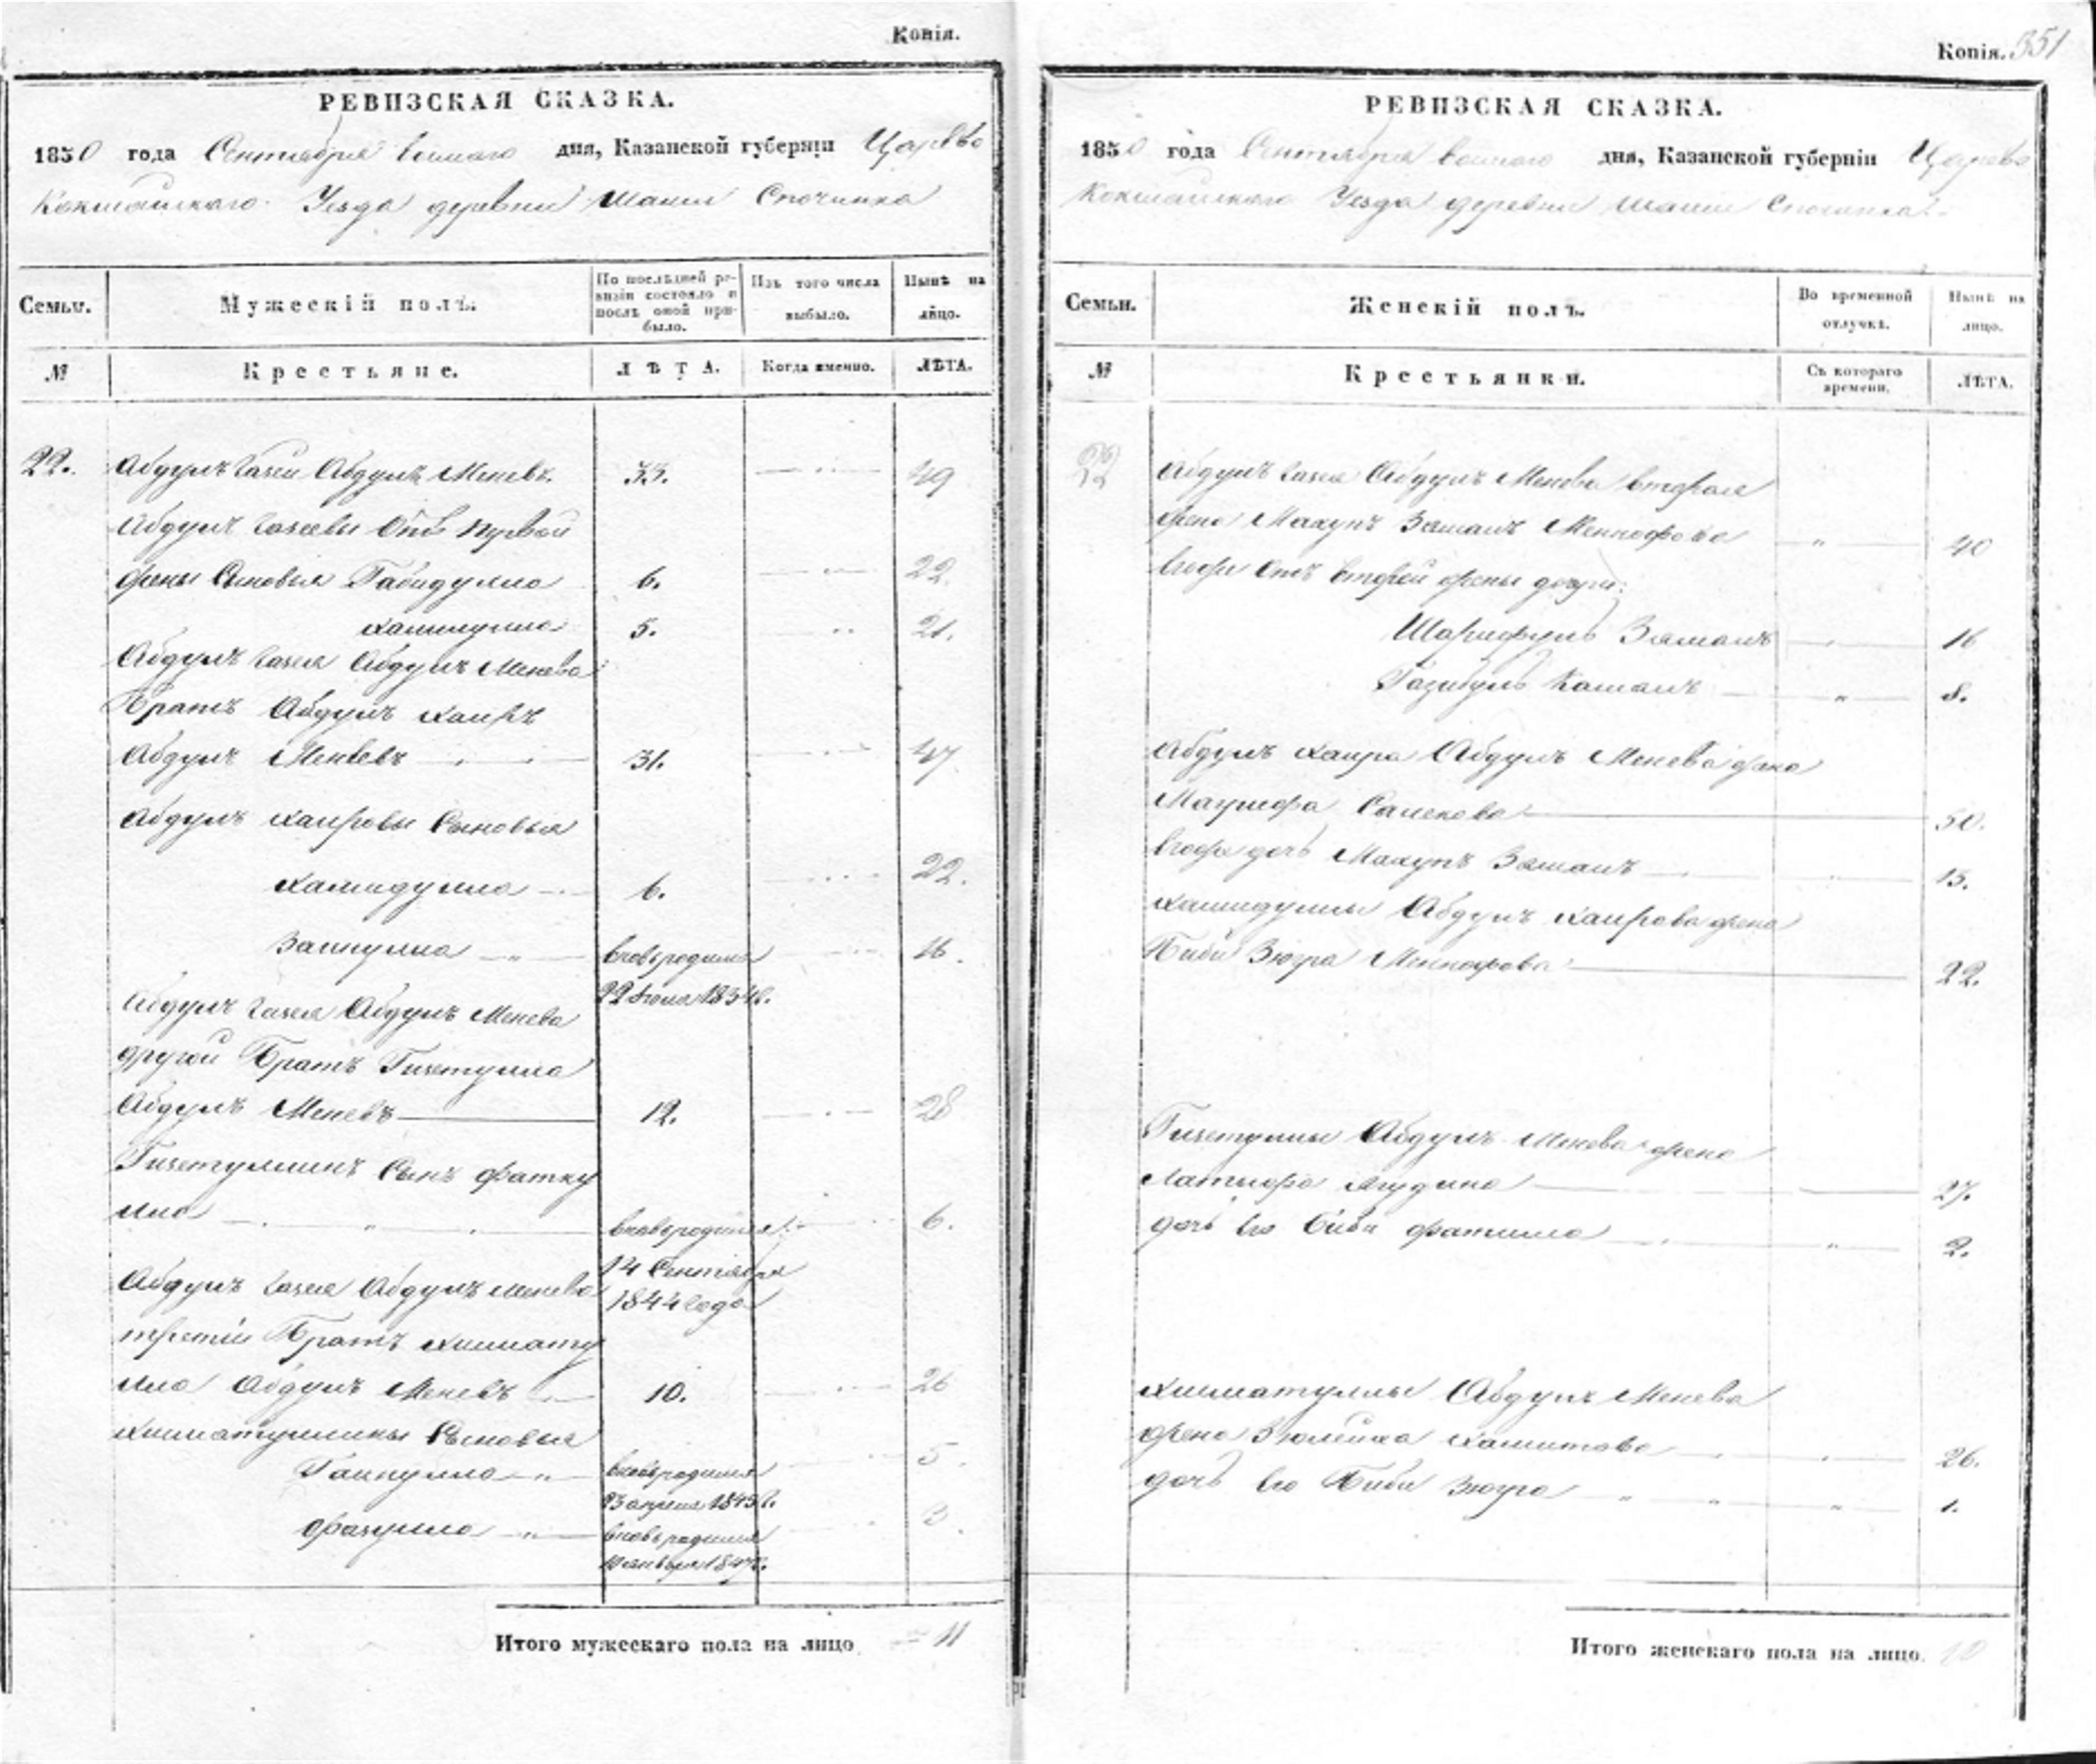 Копія.
РЕВИЗСКАЯ СКАЗКА.
1850 года Сентября дня, Казанской губерніи Царево
Кокшайскаго Уезда деревни Шаши
Семьи. Мужескій полъ. По послѣдней ревизіи состояло и послѣ оной прибыло. Изъ того числа выбыло. Нынѣ на лицо.
№ Крестьяне. ЛѢТА. Когда именно. ЛѢТА.
22. Абдулъ Газей Абдулъ Меневъ. 33. 49
Абдулъ Газеевы Отъ первой
жены Сыновья Габидулла 6. 22.
5. 21.
Абдулъ Газея Абдулъ Менева
Братъ Абдулъ Каиръ
Абдулъ Меневъ 31. 47
Абдулъ Каировы Сыновья
Хамидулла 6. 22.
Зайнулла вновьродился 16.
22 1834г.
Абдулъ Газея Абдулъ Менева
другой Братъ Гизетулла
Абдулъ Меневъ 12. 28
Гизетуллинъ Сынъ Фатку
лла вновьродился 6.
14 Сентября
Абдулъ Газея Абдулъ Менева 1844 года
третій Братъ Хисмату
лла Абдулъ Меневъ 10. 26
Хисматуллины Сыновья
Гайнулла вновьродился 5.
апреля 1845г.
Фазулла вновьродился 3.
января 1847г.
Итого мужескаго пола на лицо 11
Копія. 351
РЕВИЗСКАЯ СКАЗКА.
1850 года Сентября дня, Казанской губерніи Царево
Кокшайскаго Уезда деревни Шаши
Семьи. Женскій полъ. Во временной отлучкѣ. Нынѣ на лицо.
№ Крестьянки. Съ котораго времени. ЛѢТА.
22 Абдулъ Газея Абдулъ Менева вторая
жена Махупъ Замалъ Меннафова 40
Егожъ Отъ второй жены дочри:
Шарифулъ Замалъ 16
Камалъ 8.
Абдулъ Каира Абдулъ Менева жена
50.
Егожъ дочь Махупъ Замалъ 15.
Хамидуллы Абдулъ Каирова жена
Биби Зюгра Меннафова 22.
Гизетуллы Абдулъ Менева жена
Латыфа Ягудина 27.
дочь Его Биби Фатима 2.
Хисматуллы Абдулъ Менева
жена Зюлейха Хамитова 26.
дочь Его Биби Зюгра 1.
Итого женскаго пола на лицо 10